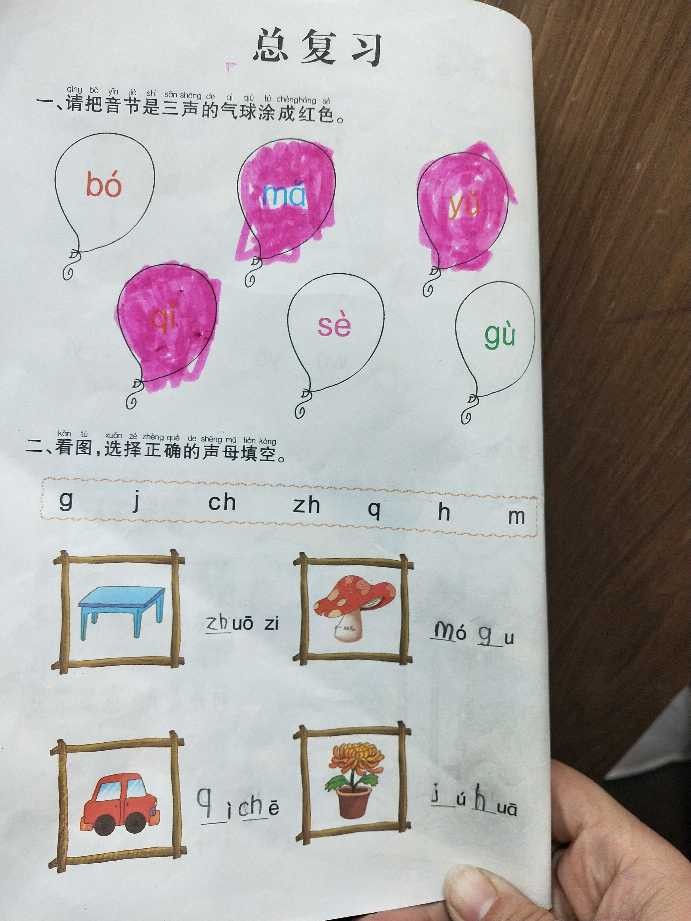 总复习
qǐng bǎ yīn jié shì sān shēng de qì qiú tú chéng hóng sè
一、请把音节是三声的气球涂成红色。
bó mǎ yǔ
qǐ sè gù
kàn tú xuǎn zé zhèng què de shēng mǔ tián kòng
二、看图,选择正确的声母填空。
g j ch zh q h m
zhuō zi mó gu
qì chē jú huā